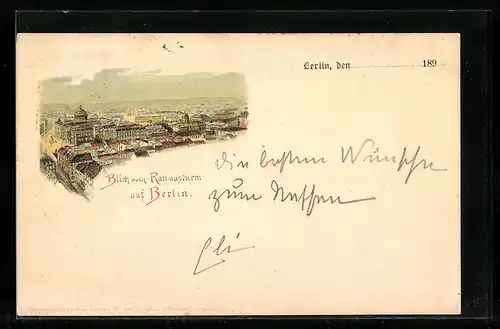 Berlin, den 189
Blick vom Rathausturm
auf Berlin.
die besten Wünsche
zum